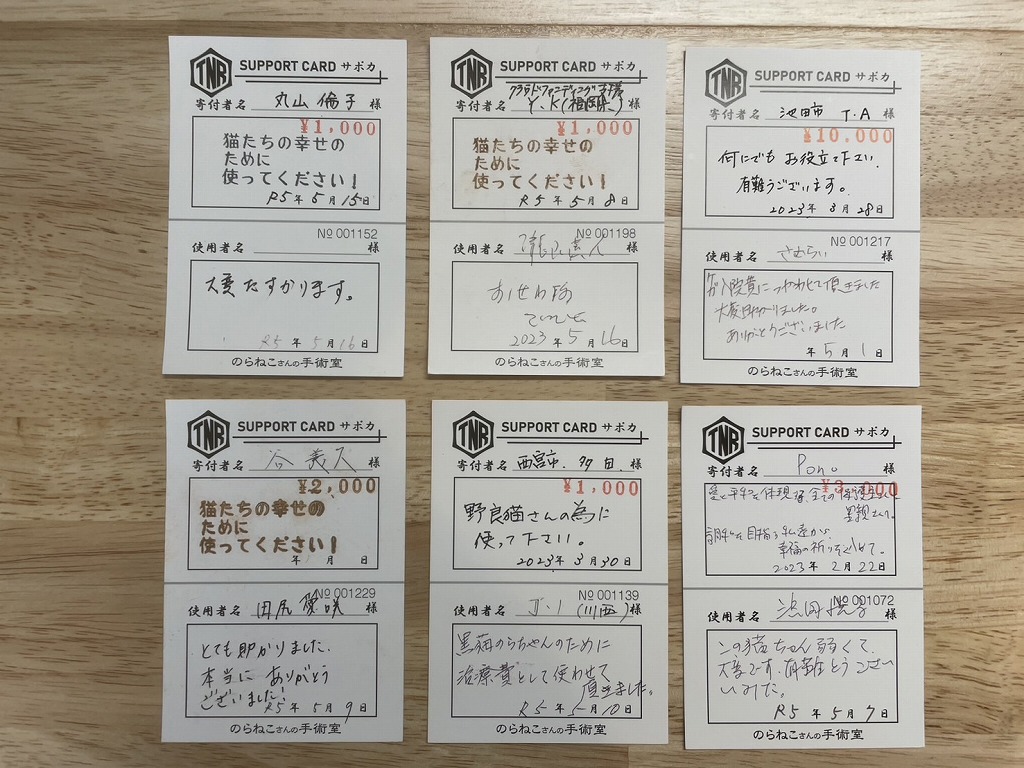 TNR SUPPORT CARD サポカ
寄付者名 丸山 倫子 様
¥1,000
猫たちの幸せの
ために
使ってください!
R5年 5月 15日
No 001152
使用者名 様
大変たすかります。
R5年 5月 16日
のらねこさんの手術室
TNR SUPPORT CARD サポカ
クラウドファンディング支援
寄付者名 Y.K(福岡県) 様
¥1,000
猫たちの幸せの
ために
使ってください!
R5年 5月 8日
No 001198
使用者名 様
2023年 5月 16日
のらねこさんの手術室
TNR SUPPORT CARD サポカ
寄付者名 池田市 T.A 様
¥10,000
何にでもお役立て下さい
有難うございます。
2023年 3月 28日
No 001217
使用者名 さむらい 様
入院費につかわせて頂きました
大変助かりました。
ありがとうございました
年 5月 1日
のらねこさんの手術室
TNR SUPPORT CARD サポカ
寄付者名 谷 義久 様
¥2,000
猫たちの幸せの
ために
使ってください!
年 月 日
No 001229
使用者名 田尻 愛咲 様
とても助かりました。
本当に ありがとう
ございました!
R5年 5月 9日
のらねこさんの手術室
TNR SUPPORT CARD サポカ
寄付者名 西宮市. 多田. 様
¥1,000
野良猫さんの為に
使って下さい。
2023年 3月 30日
No 001139
使用者名 J.I (川西) 様
黒猫のらちゃんのために
治療費として使わせて
頂きました。
R5年 5月 10日
のらねこさんの手術室
TNR SUPPORT CARD サポカ
寄付者名 Pono 様
¥3,000
愛と平和を体現する全ての
調和を目指す私達から
幸福の祈りを込めて。
2023年 2月 22日
No 001072
使用者名 様
この猫ちゃん弱くて
大変です.有難とうござい
ました。
R5年 5月 7日
のらねこさんの手術室